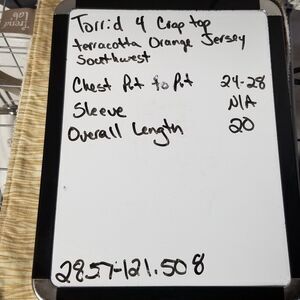 Torrid 4 Crop top
terracotta Orange Jersey
Southwest
Chest Pit to Pit 24-28
Sleeve N/A
Overall Length 20
2857-121.508